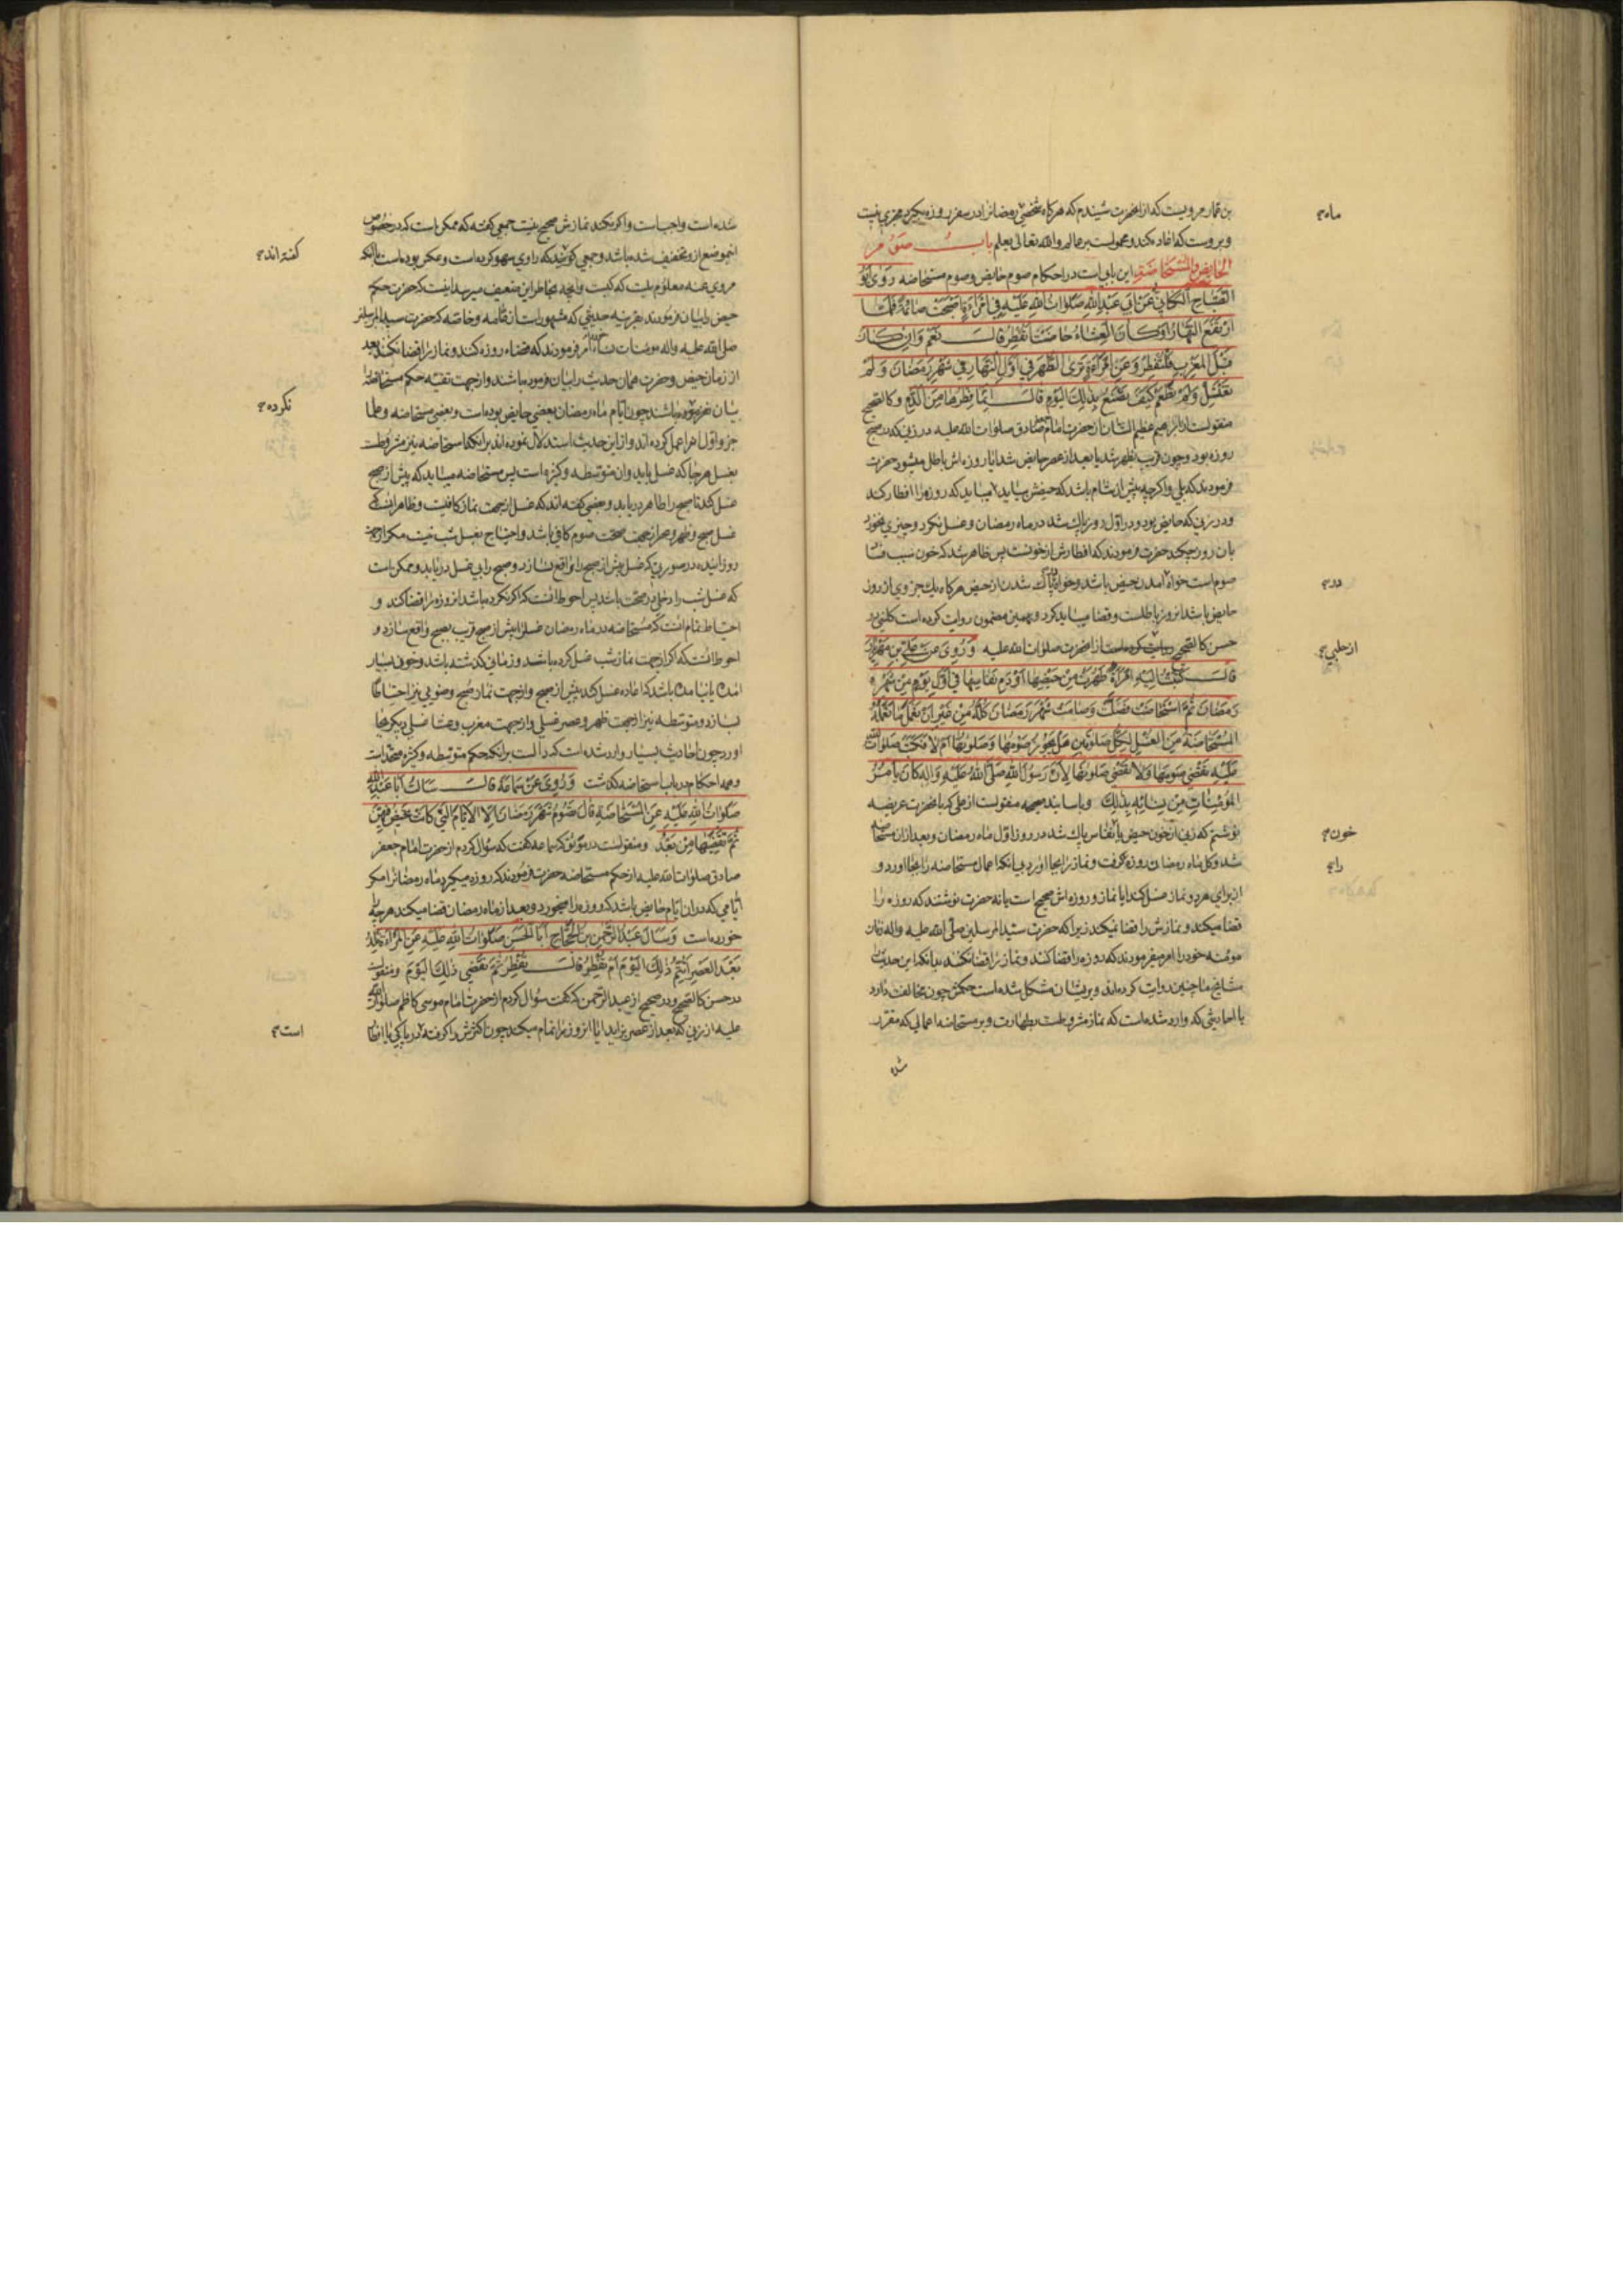 بن عمار مرویست که از انحضرت شنیدم که هرکاه شخصی رمضان را در سفر روزه بکیرد مجزی نیست
و بروست که اعاده کند و محمولست بر عالم والله تعالی یعلم باب صوم
الحایض والمستحاضة این بابی است در احکام صوم حایض و صوم مستحاضه روی ابو
الصباح الکنانی عن ابی عبدالله صلوات الله علیه فی امراة اصبحت صائمة فلما
ارتفع النهار او کان العشاء حاضت اتفطر قال نعم وان کان
قبل المغرب فلتفطر وعن امراة تری الطهر فی اول النهار فی شهر رمضان ولم
تغتسل ولم تطعم کیف تصنع بذلک الیوم قال انما فطرها من الدم و کالصحیح
منقولست از ابراهیم عظیم الشان از حضرت امام صادق صلوات الله علیه در زنی که صبح
روزه بود و چون قریب بظهر شد یا بعد از عصر حایض شد ایا روزه اش باطل میشود حضرت
فرمودند که بلی و اکرچه پیش از شام باشد که حیضش بیاید میباید که روزه را افطار کند
و در زنی که حایض بود و در اول روز پاک شد در ماه رمضان و غسل نکرد و چیزی نخورد
بان روز چکند حضرت فرمودند که افطارش از خونست پس ظاهر شد که خون سبب فساد
صوم است خواه آمدن حیض باشد و خواه پاک شدن از حیض هرکاه یک جزوی از روز
حایض باشد انروز باطلست و قضا میباید کرد و بهمین مضمون روایت کرده است کلینی در
حسن کالصحیح از انحضرت صلوات الله علیه وروی عن علی بن مهزیار
قال کتبت الیه امراة طهرت من حیضها او دم نفاسها فی اول یوم من شهر
رمضان ثم استحاضت فصلت وصامت شهر رمضان کله من غیر ان تعمل ما تعمله
المستحاضة من الغسل لکل صلوتین هل یجوز صومها وصلوتها ام لا فکتب صلوات الله
علیه تقضی صومها ولا تقضی صلوتها لان رسول الله صلی الله علیه واله کان یامر
المؤمنات من نسائه بذلک و باسانید صحیحه منقولست از علی که بانحضرت عریضه
نوشتم که زنی از خون حیض یا نفاس پاک شد در روز اول ماه رمضان و بعد ازان مستحاضه
شد و کل ماه رمضان روزه کرفت و نماز را بجا اورد بی انکه اعمال مستحاضه را بجا اورد و
از برای هر دو نماز غسل کند ایا نماز و روزه اش صحیح است یا نه حضرت نوشتند که روزه را
قضا میکند و نمازش را قضا نمیکند زیرا که حضرت سید المرسلین صلی الله علیه واله زنان
مؤمنه خود را امر میفرمودند که روزه را قضا کنند و نماز را قضا نکنند بدانکه این حدیث
مشایخ ما چنین روایت کرده اند و بر ایشان مشکل شده است حکمش چون مخالفت دارد
با احادیثی که وارد شده است که نماز مشروطست بطهارت و بر مستحاضه اعمالی که مقرر
شده
ماه
در
از حلبی
خون
را
شده است واجب است و اکر نکند نمازش صحیح نیست جمعی کفته که ممکن است که در خصوص
انموضع از و تخفیف شده باشد و جمعی کویند که راوی سهو کرده است و ممکن بوده است با آنکه
مروی عنه معلوم نیست که کیست و انچه بخاطر این ضعیف میرسد اینست که حضرت حکم
حیض را بیان فرمودند بقرینه حدیثی که مشهور است از عامه و خاصه که حضرت سید المرسلین
صلی الله علیه واله مومنات را امر فرمودند که قضاء روزه کنند و نماز را قضا نکنند بعد
از زمان حیض و حضرت همان حدیث را بیان فرموده باشند و از جهت تقیه حکم مستحاضه را
بیان نفرموده باشند چون ایام ماه رمضان بعضی حایض بوده است و بعضی مستحاضه و علما
جزو اول را عمل کرده اند و از این حدیث استدلال نموده اند برانکه استحاضه نیز مشروطست
بغسل هرجا که غسل باید وان متوسطه و کثیره است پس مستحاضه میباید که پیش از صبح
غسل کند تا صبح را طاهر دریابد و بعضی کفته اند که غسل از جهت نماز کافیست و ظاهر انست که
غسل صبح و ظهر و عصر از جهت صحت صوم کافی باشد و احتیاج بغسل شب نیست مکر از جهت
روز اینده در صورتی که غسل پیش از صبح را واقع نسازد و صبح را بی غسل دریابد و ممکن است
که غسل شب را دخلی در صحت باشد پس احوط انست که اکر نکرده باشد انروزه را قضا کند و
احتیاط تمام انست که مستحاضه در ماه رمضان غسل را پیش از صبح قریب بصبح واقع سازد و
احوط انست که اکر از جهت نماز شب غسل کرده باشد و زمانی کذشته باشد و خون بسیار
امده یا نیامده باشد که اعاده غسل کند پیش از صبح و از جهت نماز صبح وضویی نیز احتیاطا
بسازد و متوسطه نیز از جهت ظهر و عصر غسلی و از جهت مغرب و عشا غسلی دیکر بجا
اورد چون احادیث بسیار وارد شده است که دالست برانکه حکم متوسطه و کثیره متحد است
و همه احکام در باب استحاضه کذشت وروی عن سماعة قال سالت ابا عبدالله
صلوات الله علیه عن المستحاضة قال تصوم شهر رمضان الا الایام التی کانت تحیض فیهن
ثم تقضیها من بعد و منقولست در موثق که سماعه کفت که سؤال کردم از حضرت امام جعفر
صادق صلوات الله علیه از حکم مستحاضه حضرت فرمودند که روزه میکیرد ماه رمضان را مکر
ایامی که دران ایام حایض باشد که روزه را میخورد و بعد از ماه رمضان قضا میکند هرچه را
خورده است وسال عبدالرحمن بن الحجاج ابا الحسن صلوات الله علیه عن المراة تلد
بعد العصر اتتم ذلک الیوم ام تفطر قال تفطر ثم تقضی ذلک الیوم و منقولست
در حسن کالصحیح و در صحیح از عبد الرحمن که کفت سؤال کردم از حضرت امام موسی کاظم صلوات الله
علیه از زنی که بعد از عصر بزاید ایا انروز را تمام میکند چون اکثرش را کرفته در پاکی یا افطار
کفته اند
نکرده
است